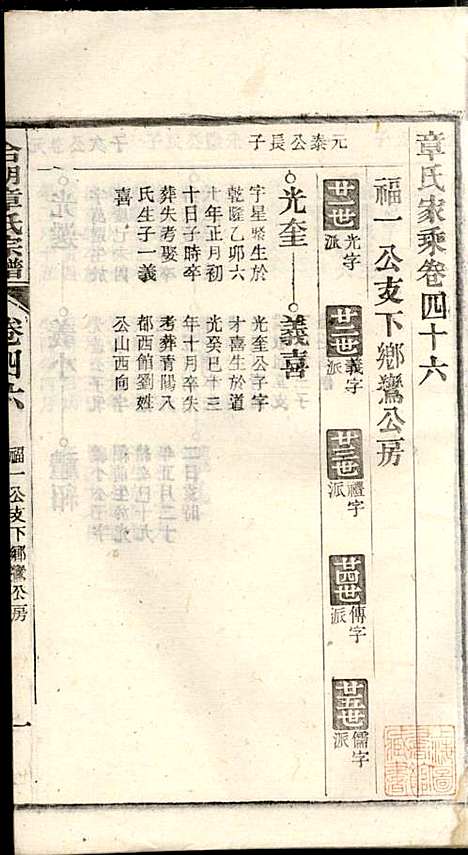 章氏家乘卷四十六
福一公支下鄉鶯公房
廿一世 光字派
廿二世 義字派
廿三世 禮字派
廿四世 傳字派
廿五世 儒字派
元泰公長子
光奎
字星聚生於
乾隆乙卯六
十年正月初
十日子時卒
葬失考娶
氏生子一義
喜
義喜
光奎公子字
才喜生於道
光癸巳十三
年十月卒失
考葬青陽八
都西館劉姓
公山西向
合朋章氏宗譜
卷四六
福一公支下鄉鶯公房
一